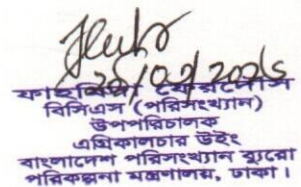 20/07/2026
বিসিএস (পরিসংখ্যান)
উপপরিচালক
এগ্রিকালচার উইং
বাংলাদেশ পরিসংখ্যান ব্যুরো
পরিকল্পনা মন্ত্রণালয়, ঢাকা।